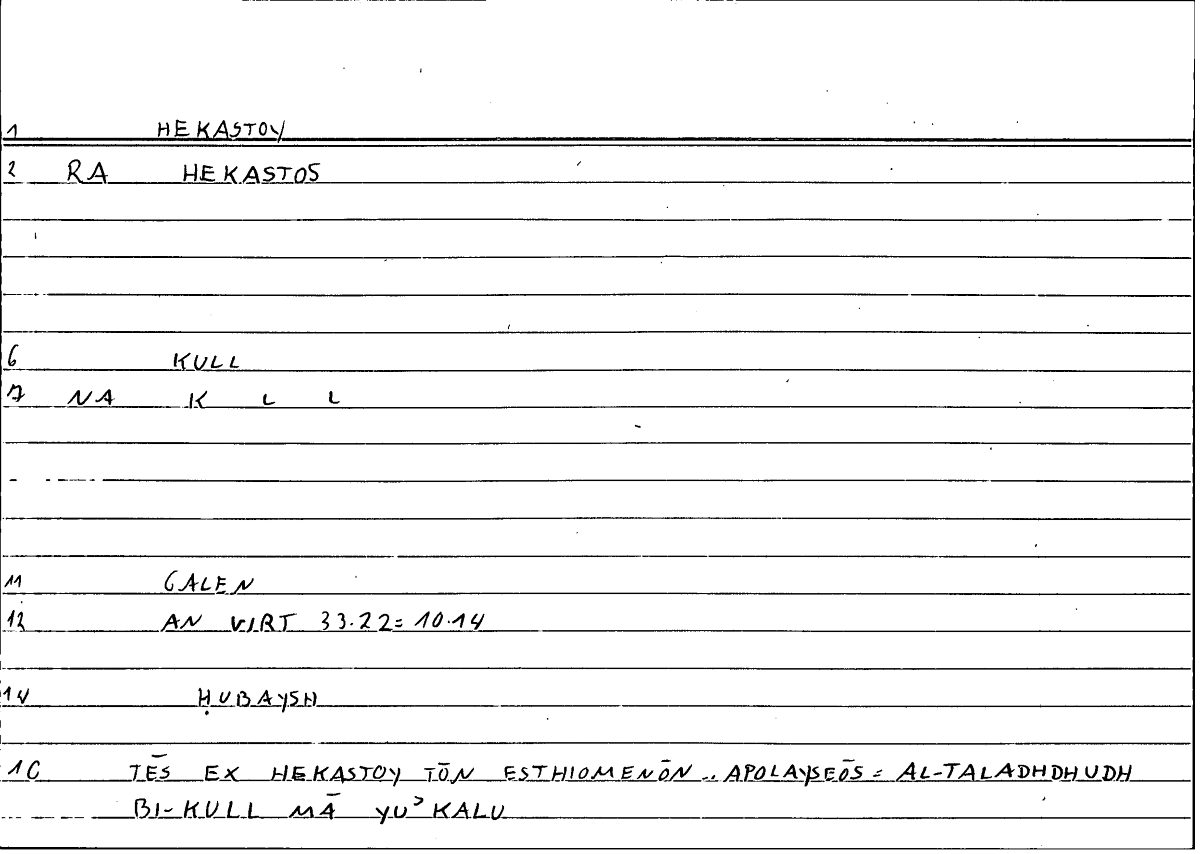 1 HEKASTOY
2 RA HEKASTOS
6 KULL
7 NA K L L
11 GALEN
12 AN VIRT 33.22=10.14
14 ḤUBAYSH
16 TĒS EX HEKASTOY TŌN ESTHIOMENŌN .. APOLAYSEŌS = AL-TALADHDHUDH
BI-KULL MĀ YUʾKALU